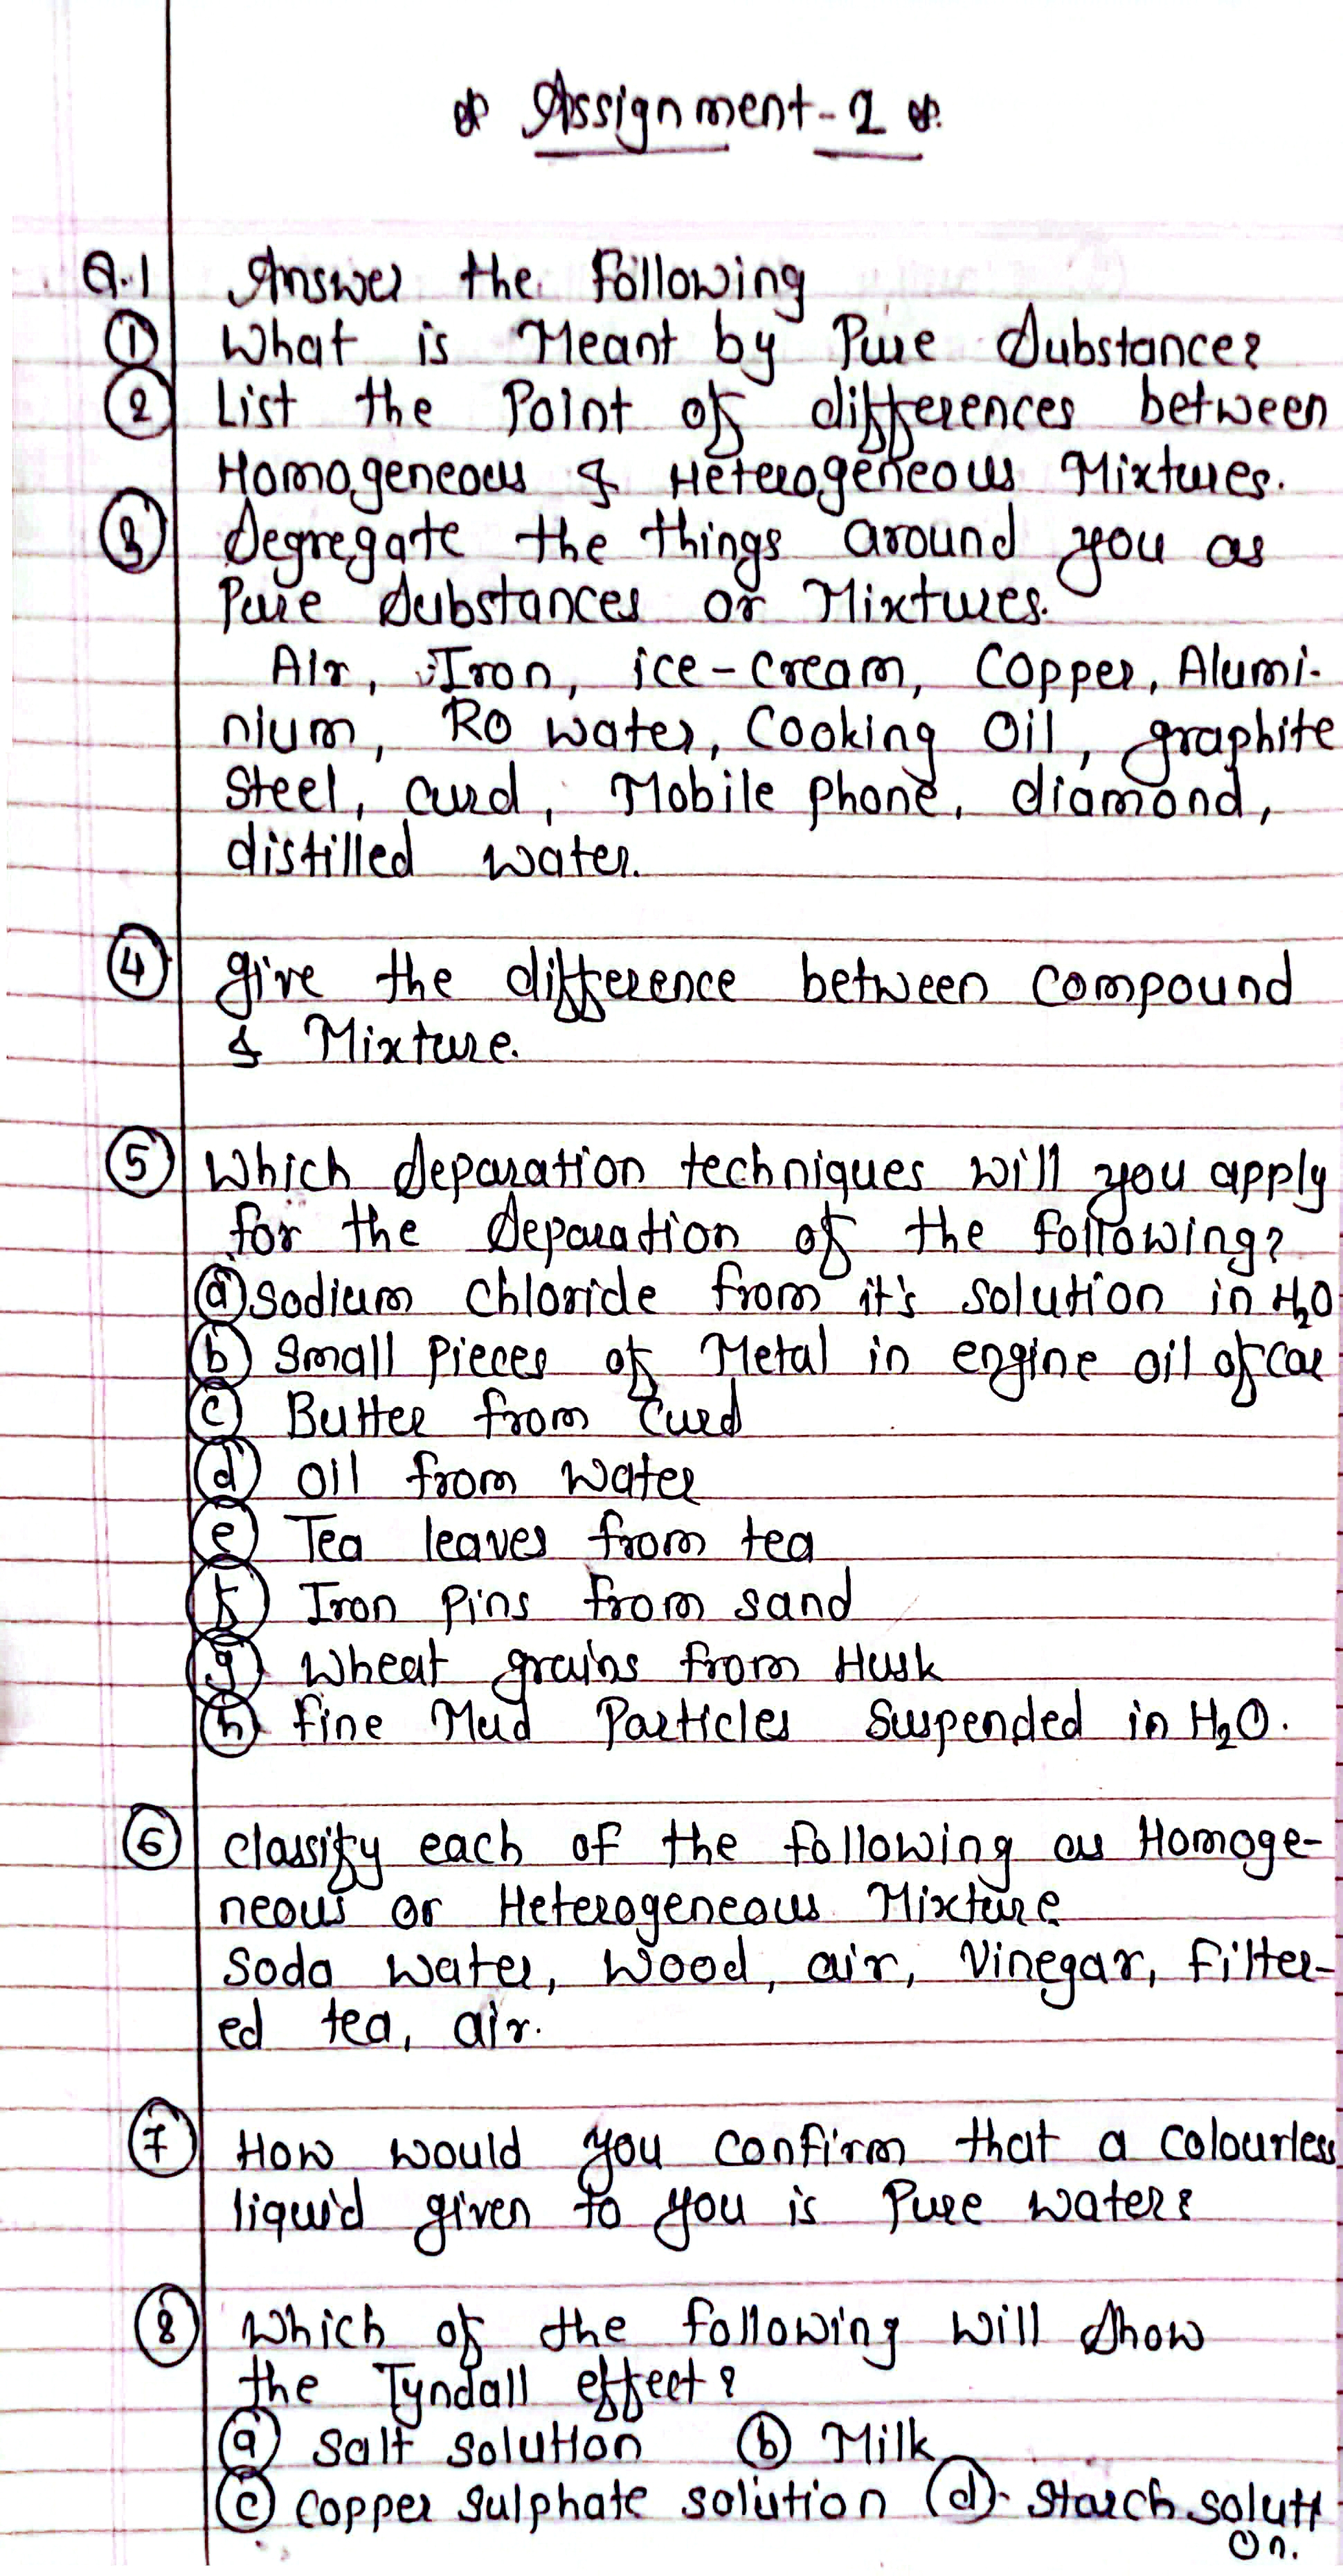 Assignment-2
Q.1 Answer the following
① What is Meant by Pure Substance?
② List the Point of differences between
Homogeneous & Heterogeneous Mixtures.
③ Segregate the things around you as
Pure Substances or Mixtures.
Air, Iron, ice-cream, Copper, Alumi-
nium, RO water, Cooking Oil, graphite
Steel, curd, Mobile phone, diamond,
distilled water.
④ give the difference between compound
& Mixture.
⑤ Which Separation techniques will you apply
for the Separation of the following?
ⓐ sodium chloride from it's solution in H₂O
ⓑ Small pieces of Metal in engine oil of car
ⓒ Butter from Curd
ⓓ Oil from water
ⓔ Tea leaves from tea
ⓕ Iron pins from sand
ⓖ Wheat grains from Husk
ⓗ fine Mud Particles Suspended in H₂O.
⑥ classify each of the following as Homoge-
neous or Heterogeneous Mixture
Soda water, Wood, air, Vinegar, Filter-
ed tea, air.
⑦ How would you confirm that a colourless
liquid given to you is Pure water?
⑧ Which of the following will show
the Tyndall effect?
ⓐ Salt solution ⓑ Milk
ⓒ Copper Sulphate solution ⓓ Starch soluti
on.